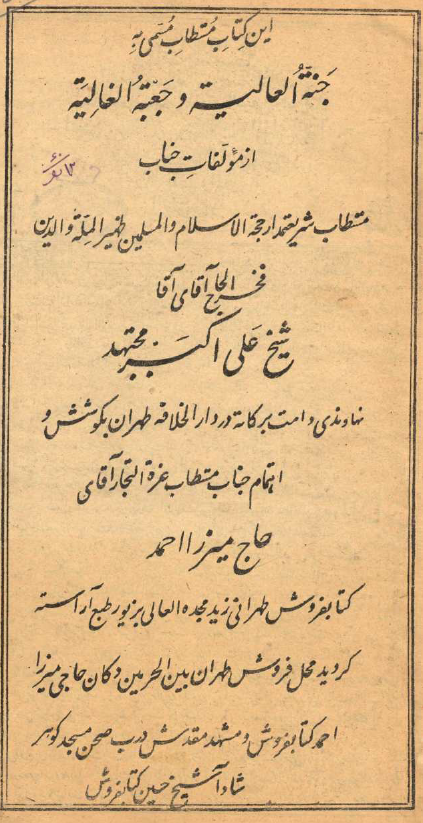 این کتاب مُستطاب مُسَمی بِه
جَنةُ العالیة وجَعبَة ُالغالیَة
از مؤلفات جناب
مستطاب شریعتمدار حجة الاسلام والمسلمین ظهیر الملة والدین
فخر الحاج آقای آقا
شیخ عَلی اکبر مجتهد
نهاوندی دامت برکاته در دار الخلافه طهران بکوشش و
اهتمام جناب مستطاب عزة التجار آقای
حاج میرزا احمد
کتابفروش طهرانی زید مجده العالی بزیور طبع آراسته
کردید محل فروش طهران بین الحرمین دکان حاجی میرزا
احمد کتابفروش و مشهد مقدس درب صحن مسجد کوهر
شاد آشیخ حسین کتابفروش